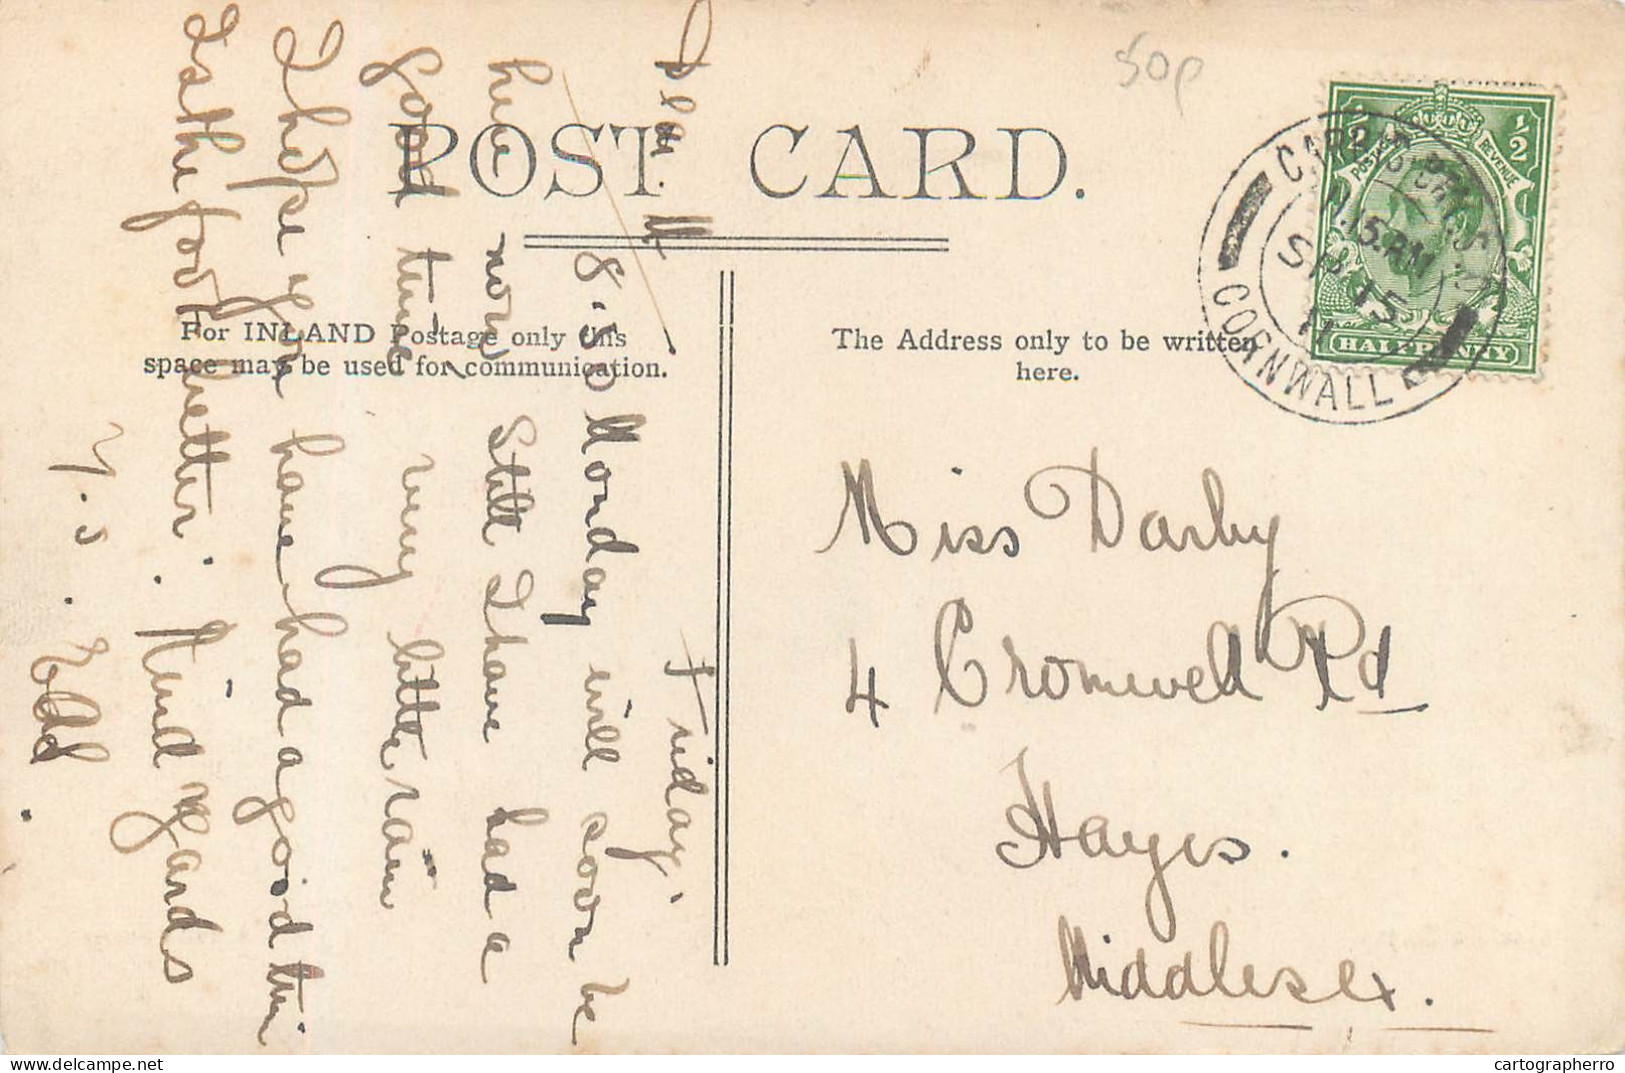 50p
POST CARD.
For INLAND Postage only this
space may be used for communication.
The Address only to be written
here.
½ ½
POSTAGE REVENUE
HALFPENNY
11.15.PM
SP 15
11
CORNWALL
Miss Darby
4 Cromwell Rd
Hayes.
Middlesex.
Dear M. Friday.
8.30 Monday will soon be
here now Still I have had a
good time very little rain
I hope you have had a good time
Is the foot better. Kind regards
Y.S. Edd.
cartographerro